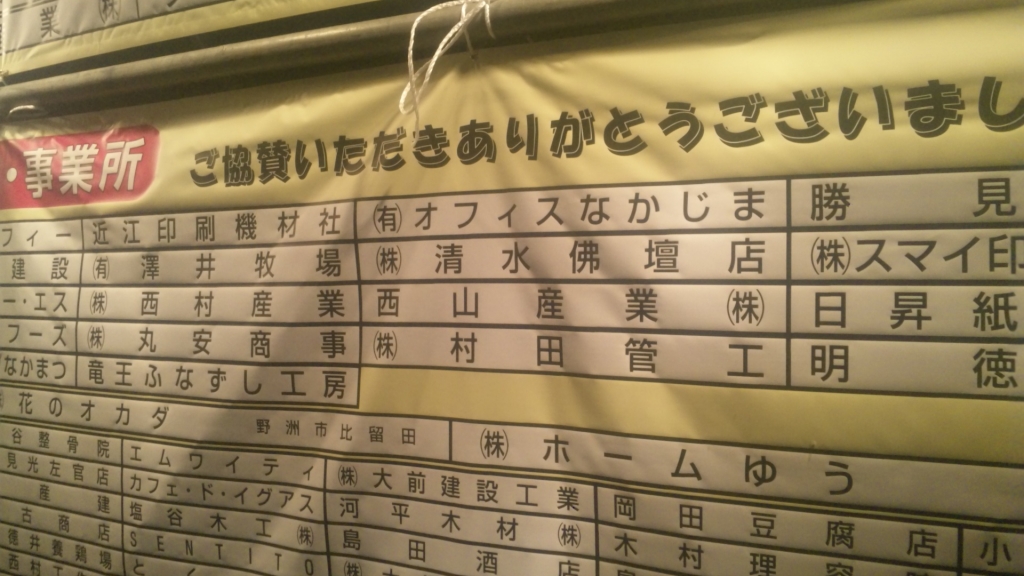 業 ㈱
・事業所 ご協賛いただきありがとうございまし
フィー 近江印刷機材社 ㈲オフィスなかじま 勝見
建設 ㈲澤井牧場 ㈱清水佛壇店 ㈱スマイ印
ー・エス ㈱西村産業 西山産業㈱ 日昇紙
フーズ ㈱丸安商事 ㈱村田管工 明徳
なかまつ 竜王ふなずし工房
花のオカダ 野洲市比留田 ㈱ホームゆう
谷整骨院 エムワイティ ㈱大前建設工業 岡田豆腐店 小
見光左官店 カフェ・ド・イグアス 河平木材㈱ 木村理容
産建 塩谷木工㈱ 島田酒店
古商店 SENTITO
徳井養鶏場
西村工